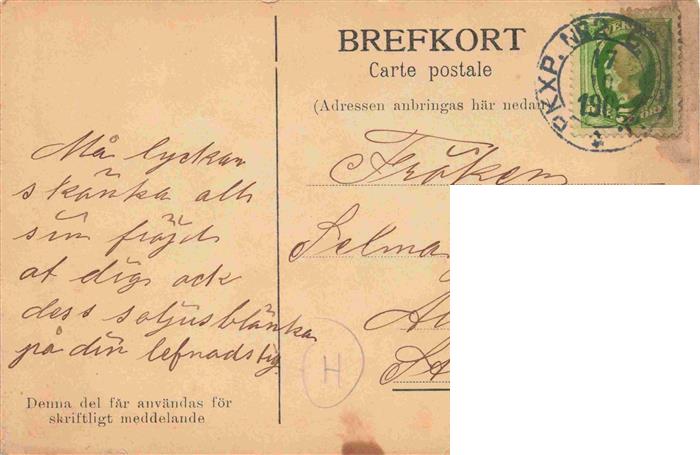 BREFKORT
Carte postale
(Adressen anbringas här nedan)
PKXP. Nr 2
17
190
Må lyckan
skänka all
sin fröjd
åt dig, ock
dess solljus blänka
på din lefnadstig.
Fröken
Selma
H
Denna del får användas för
skriftligt meddelande